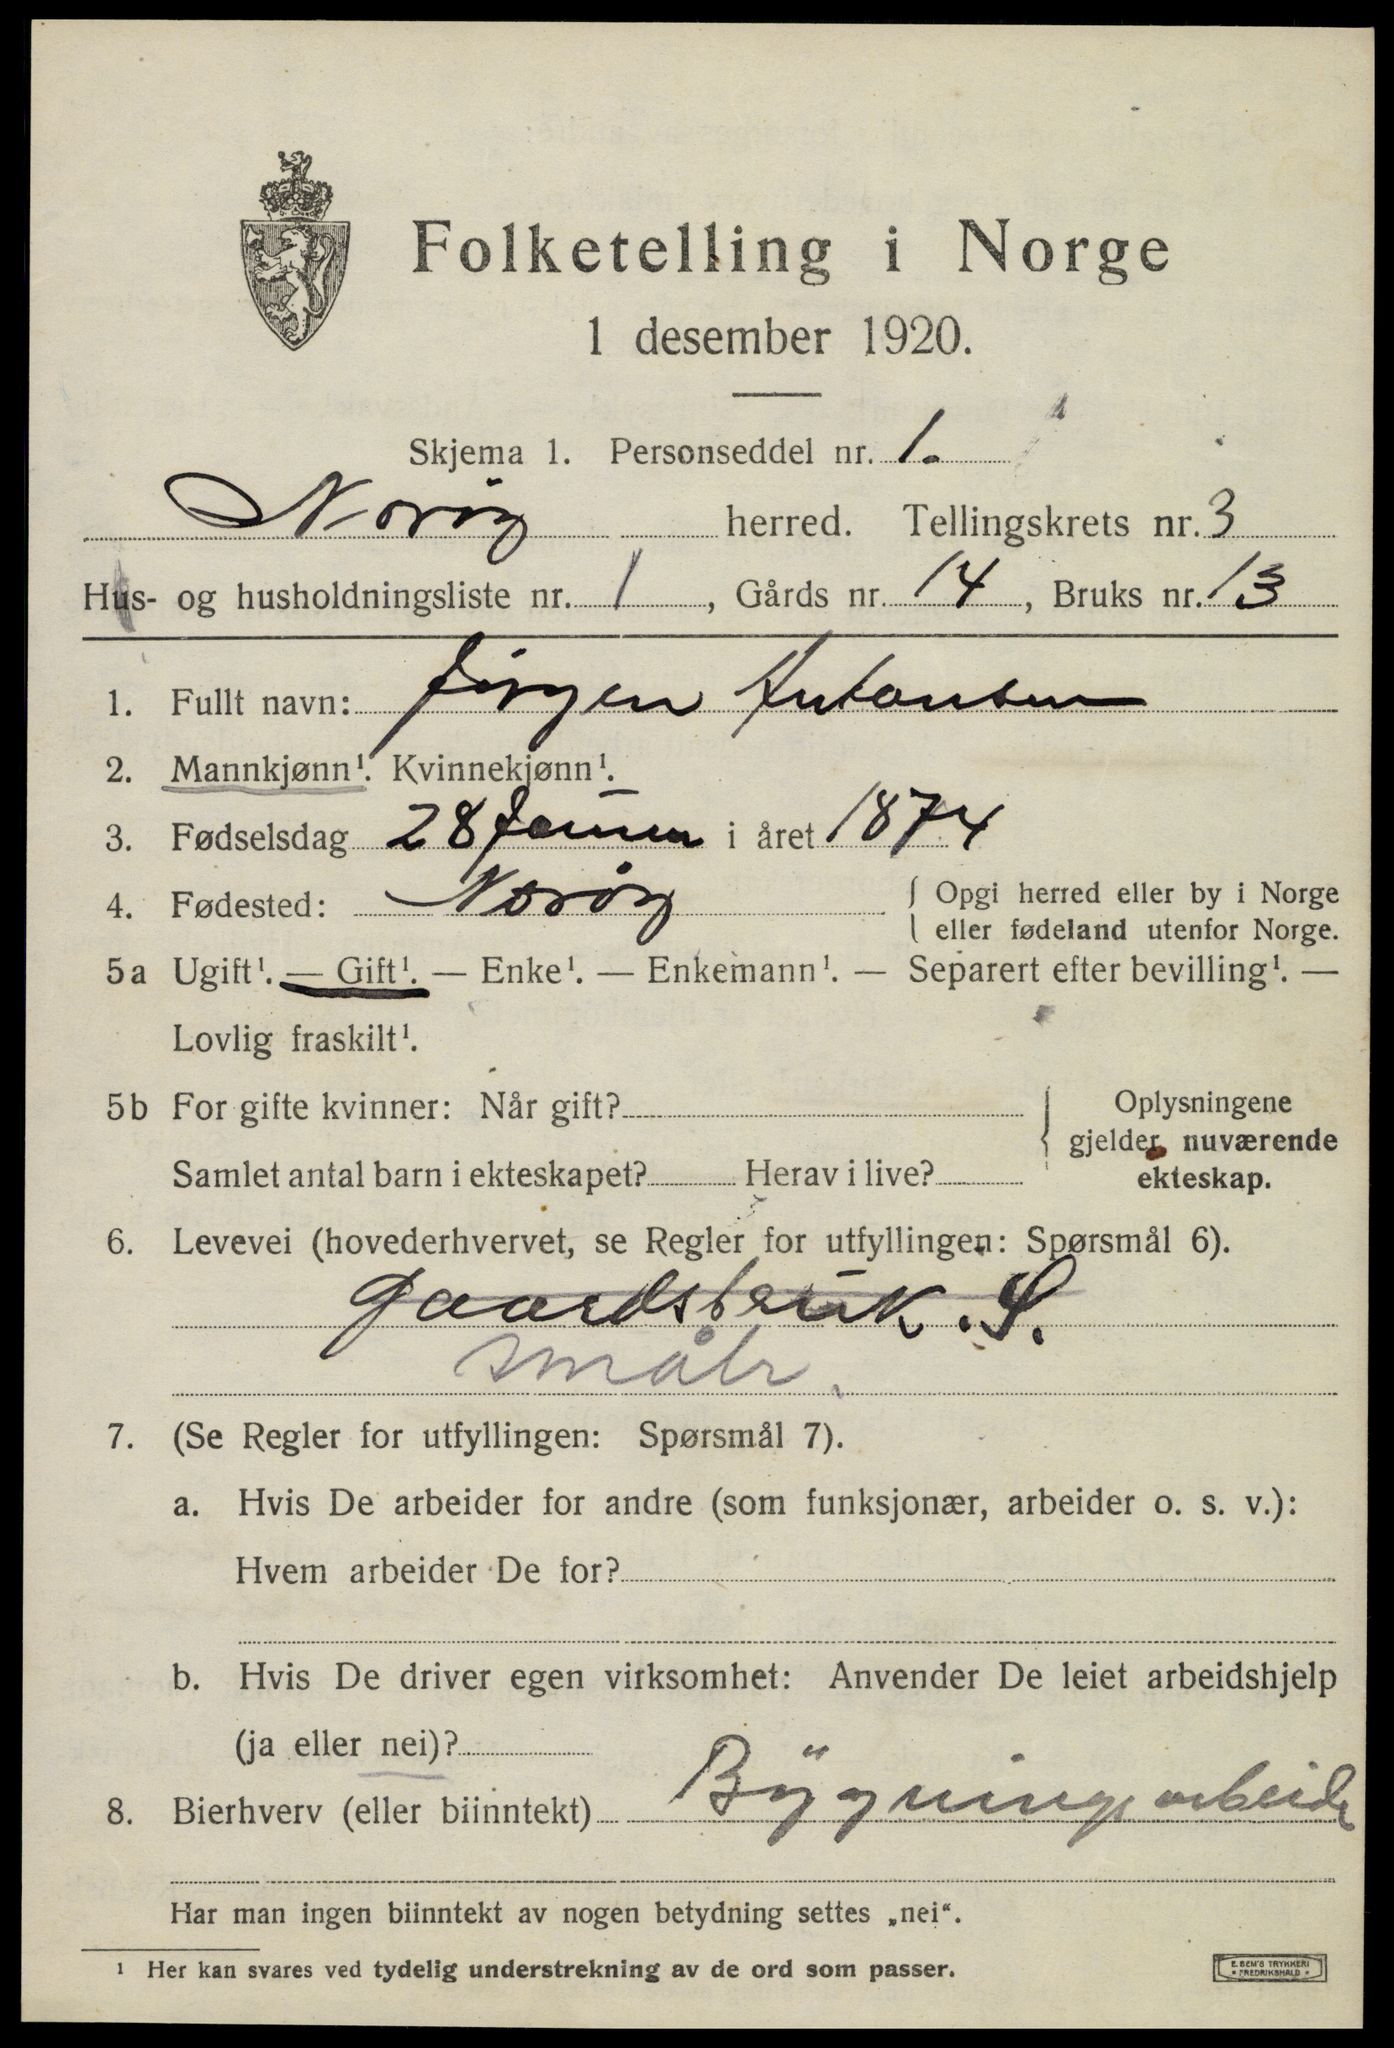 Folketelling i Norge
1 desember 1920.
Skjema 1. Personseddel nr. 1.
Norøy herred. Tellingskrets nr. 3
Hus- og husholdningsliste nr. 1, Gårds nr. 14, Bruks nr. 13
1. Fullt navn: Jörgen Antonsen
2. Mannkjønn¹. Kvinnekjønn¹.
3. Fødselsdag 28 Januar i året 1874
4. Fødested: Norøy { Opgi herred eller by i Norge
eller fødeland utenfor Norge.
5a Ugift¹. — Gift¹. — Enke¹. — Enkemann¹. — Separert efter bevilling¹. —
Lovlig fraskilt¹.
5b For gifte kvinner: Når gift? { Oplysningene
gjelder nuværende
Samlet antal barn i ekteskapet? Herav i live? ekteskap.
6. Levevei (hovederhvervet, se Regler for utfyllingen: Spørsmål 6).
Gaardsbruk. S.
småbr.
7. (Se Regler for utfyllingen: Spørsmål 7).
a. Hvis De arbeider for andre (som funksjonær, arbeider o. s. v.):
Hvem arbeider De for?
b. Hvis De driver egen virksomhet: Anvender De leiet arbeidshjelp
(ja eller nei)?
8. Bierhverv (eller biinntekt) Bygningsarbeide
Har man ingen biinntekt av nogen betydning settes „nei“.
¹ Her kan svares ved tydelig understrekning av de ord som passer.
E. SEM'S TRYKKERI
FREDRIKSHALD